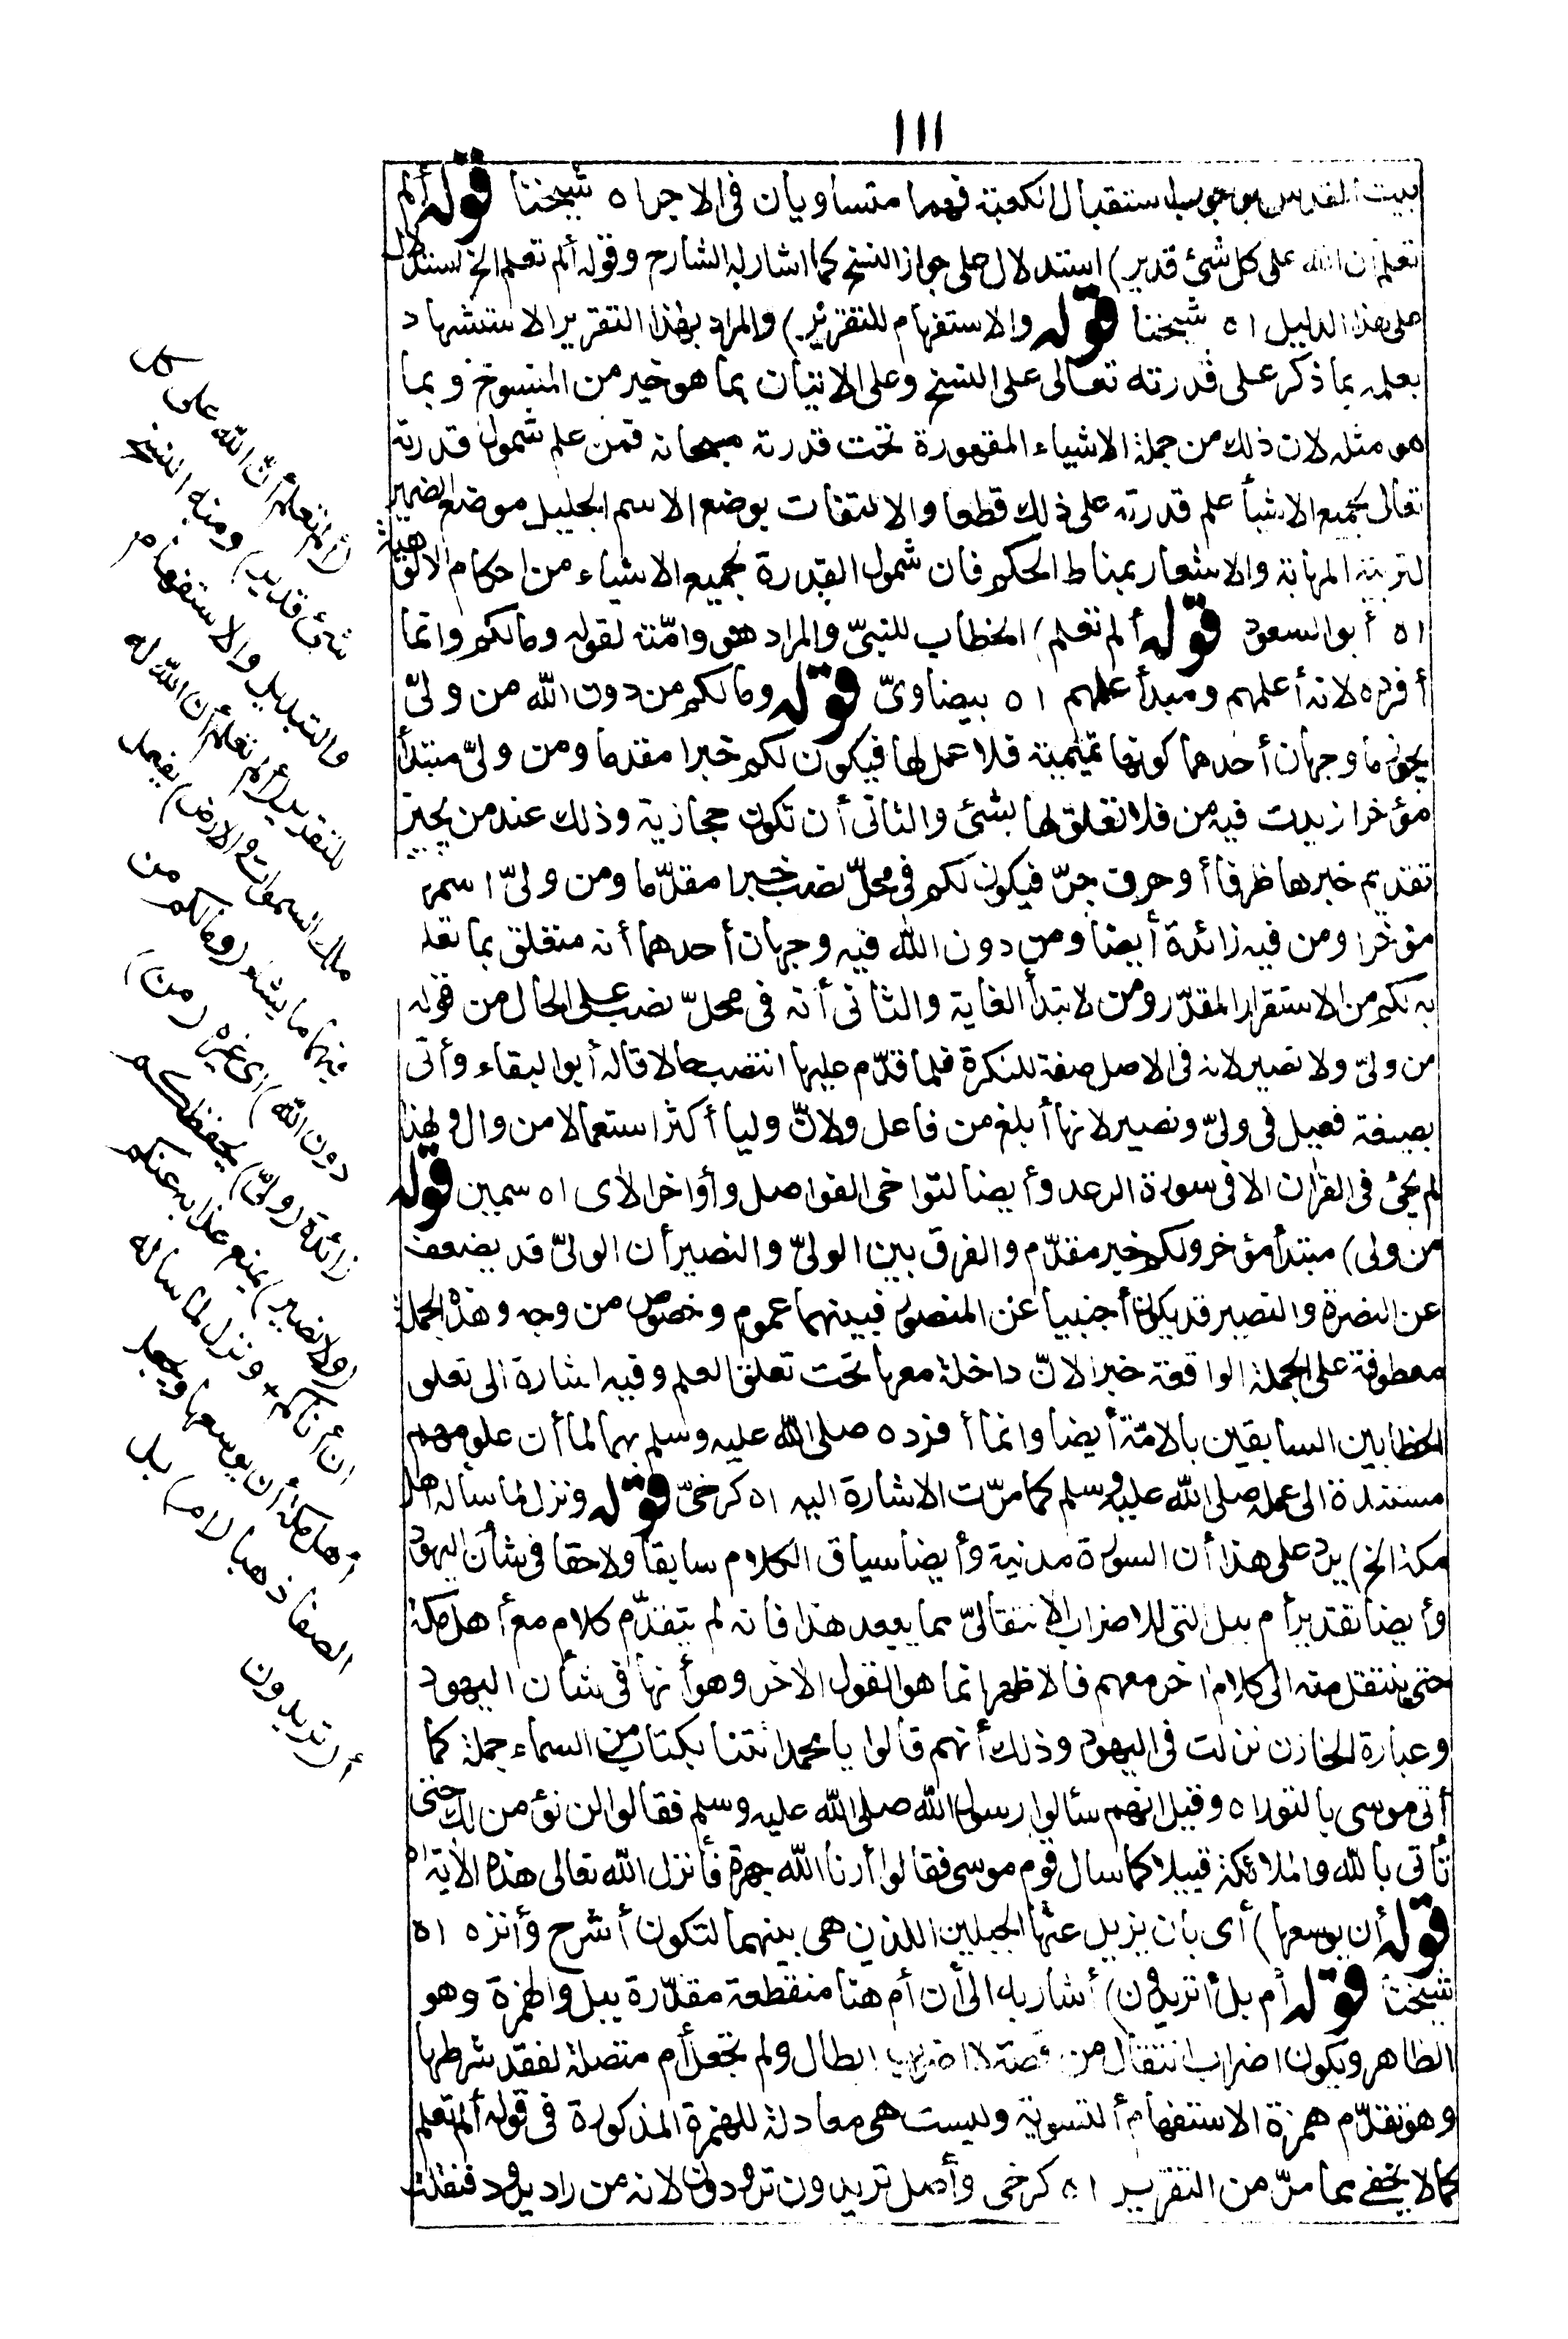 ١١١
بيت المقدس بوجوب استقبال الكعبة فهما متساويان فى الاجر ا ه شيخنا قوله ألم
تعلم أن الله على كل شئ قدير) استدلال على جواز النسخ كما اشار له الشارح وقوله ألم تعلم الخ استدلال
على هذا الدليل ا ه شيخنا قوله والاستفهام للتقرير) والمراد بهذا التقرير الاستشهاد
بعلمه بما ذكر على قدرته تعالى على النسخ وعلى الاتيان بما هو خير من المنسوخ وبما
هو مثله لان ذلك من جملة الاشياء المقهورة تحت قدرته سبحانه فمن علم شمول قدرته
تعالى لجميع الاشيأ علم قدرته على ذلك قطعا والالتفات بوضع الاسم الجليل موضع الضمير
لتربية المهابة والاشعار بمناط الحكم فان شمول القدرة لجميع الاشياء من احكام الالوهية
ا ه أبو السعود قوله ألم تعلم) الخطاب للنبىّ والمراد هو وامّته لقوله ومالكم وانما
أفرده لانه أعلمهم ومبدأ علمهم ا ه بيضاوىّ قوله ومالكم من دون الله من ولىّ
يجوز ما وجهان أحدهما كونها تميمية فلا عمل لها فيكون لكم خبرا مقدما ومن ولىّ مبتدأ
مؤخرا زيدت فيه من فلا تعلق لها بشئ والثانى أن تكون حجازية وذلك عند من يجيز
تقديم خبرها ظرفا أو حرف جرّ فيكون لكم فى محلّ نصب خبرا مقدّما ومن ولىّ اسمه
مؤخرا ومن فيه زائدة أيضا ومن دون الله فيه وجهان أحدهما أنه متعلق بما تعلق
به لكم من الاستقرار المقدّر ومن لابتدأ الغاية والثانى أنه فى محلّ نصب على الحال من قوله
من ولىّ ولا نصير لانه فى الاصل صفة للنكرة فلما قدّم عليها انتصب حالا قاله أبو البقاء وأتى
بصيغة فعيل فى ولىّ ونصير لانها أبلغ من فاعل ولانّ وليا أكثر استعمالا من وال ولهذا
لم يجئ فى القرآن الا فى سورة الرعد وأيضا لتواخى الفواصل وأواخر الآى ا ه سمين قوله
من ولى) مبتدأ مؤخر ولكم خبر مقدّم والفرق بين الولىّ والنصير أن الولىّ قد يضعف
عن النصرة والنصير قد يكون أجنبيا عن المنصور فبينهما عموم وخصوص من وجه وهذه الجملة
معطوفة على الجملة الواقعة خبرا لانّ داخلة معها تحت تعلق العلم وفيه اشارة الى تعلق
الخطابين السابقين بالامّة أيضا وانما أفرده صلى الله عليه وسلم بهما لما أن علومهم
مستندة الى علمه صلى الله عليه وسلم كما مرّت الاشارة اليه ا ه كرخىّ قوله ونزل لما ساله اهل
مكة الخ) يرد على هذا أن السورة مدنية وأيضا سياق الكلام سابقا ولاحقا فى شأن اليهود
وأيضا تقدير أم ببل التى للاضراب الانتقالىّ مما يبعد هذا فانه لم يتقدّم كلام مع أهل مكة
حتى ينتقل منه الى كلام اخر معهم فالاظهر انما هو القول الاخر وهو أنها فى شأن اليهود
وعبارة الخازن نزلت فى اليهود وذلك أنهم قالوا يا محمد ائتنا بكتاب من السماء جملة كما
أتى موسى بالتوراه وقيل انهم سألوا رسول الله صلى الله عليه وسلم فقالوا لن نؤمن لك حتى
تأتى بالله والملائكة قبيلا كما سأل قوم موسى فقالوا أرنا الله جهرة فأنزل الله تعالى هذه الآية ا ه
قوله أن يوسعها) أى بان يزيل عنها الجبلين اللذين هى بينهما لتكون أشرح وأنزه ا ه
شيخنا قوله أم بل أتريدون) أشار به الى أن أم هنا منقطعة مقدّرة ببل والهمزة وهو
الظاهر ويكون اضراب انتقال من قصة لا اضراب ابطال ولم تجعل أم متصلة لفقد شرطها
وهو تقدّم همزة الاستفهام أ التسوية وليست هى معادلة للهمزة المذكورة فى قوله ألم تعلم
كما لا يخفى مما مرّ من التقرير ا ه كرخى وأصل تريدون ترودون لانه من راد يرود فنقلت
(ألم تعلم أنّ الله على كل
شئ قدير) ومنه النسخ
والتبديل والاستفهام
للتقرير (ألم تعلم أن الله له
ملك السموات والارض) يفعل
فيهما ما يشاء (ومالكم من
دون الله) اى غيره (من)
زائدة (ولىّ) يحفظكم
(ولا نصير) يمنع عذابه عنكم
ان أتاكم ونزل لما ساله
أهل مكة أن يوسعها ويجعل
الصفا ذهبا (أم) بل
أ (تريدون